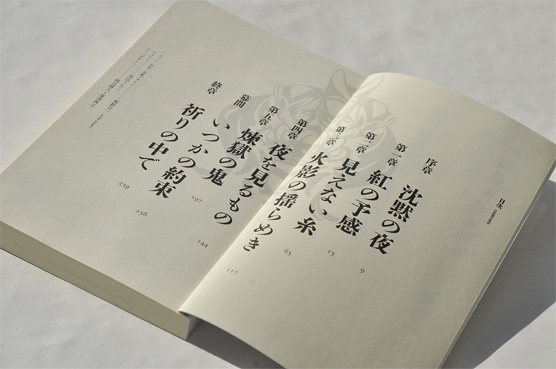 目次
序章 沈黙の夜 9
第一章 紅の予感 15
第二章 見えない糸
第三章 火影の揺らめき 117
第四章 夜を見るもの 144
第五章 煉獄の鬼 197
幕間 いつかの約束
終章 祈りの中で